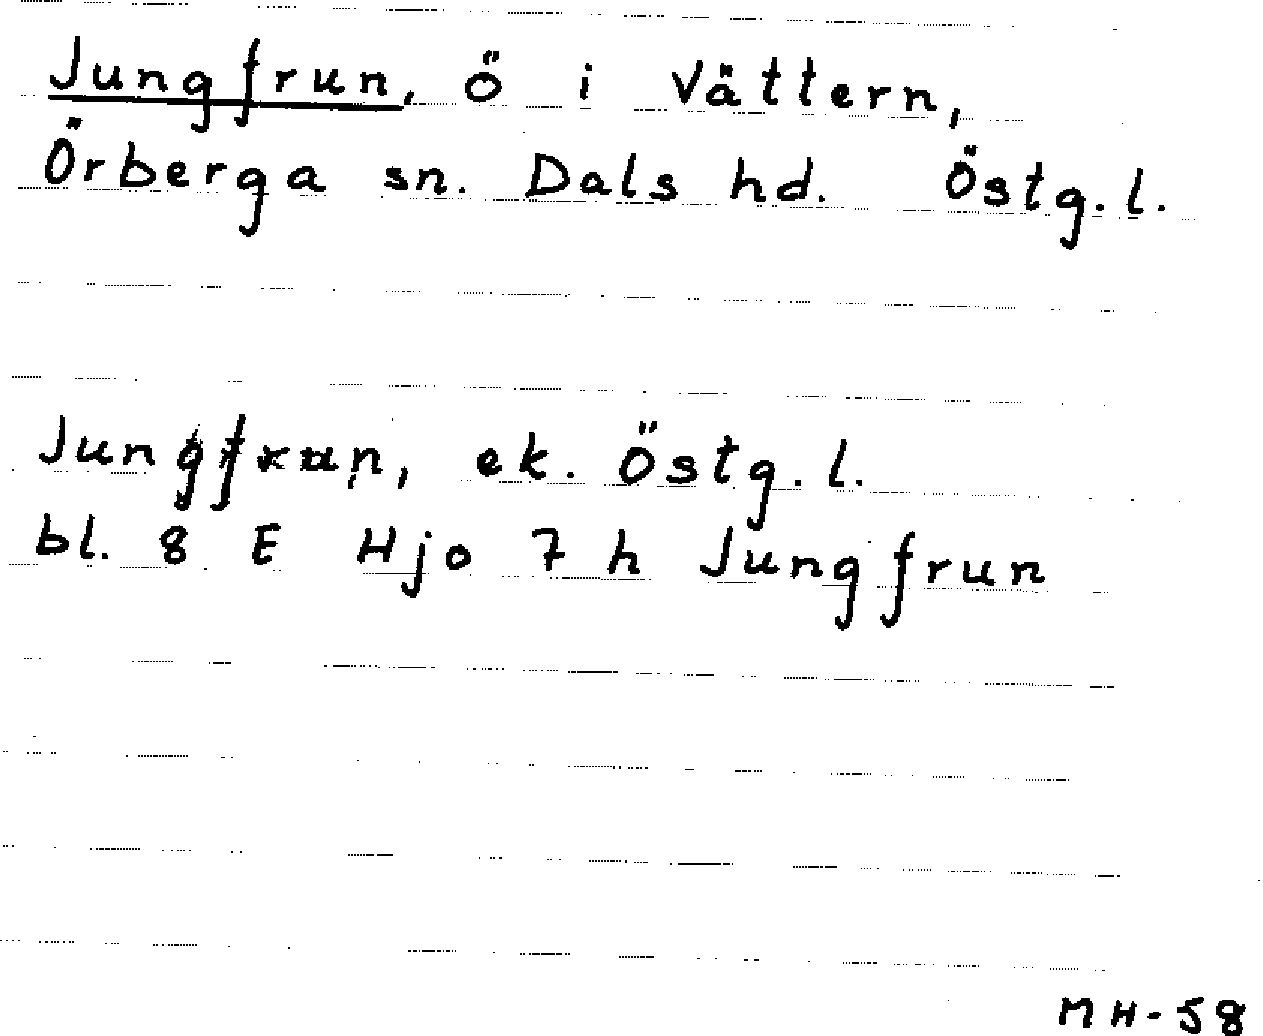 Jungfrun, ö i Vättern,
Örberga sn. Dals hd. Östg.l.
Jungfrun, ek. Östg.l.
bl. 8 E Hjo 7 h Jungfrun
MH-58